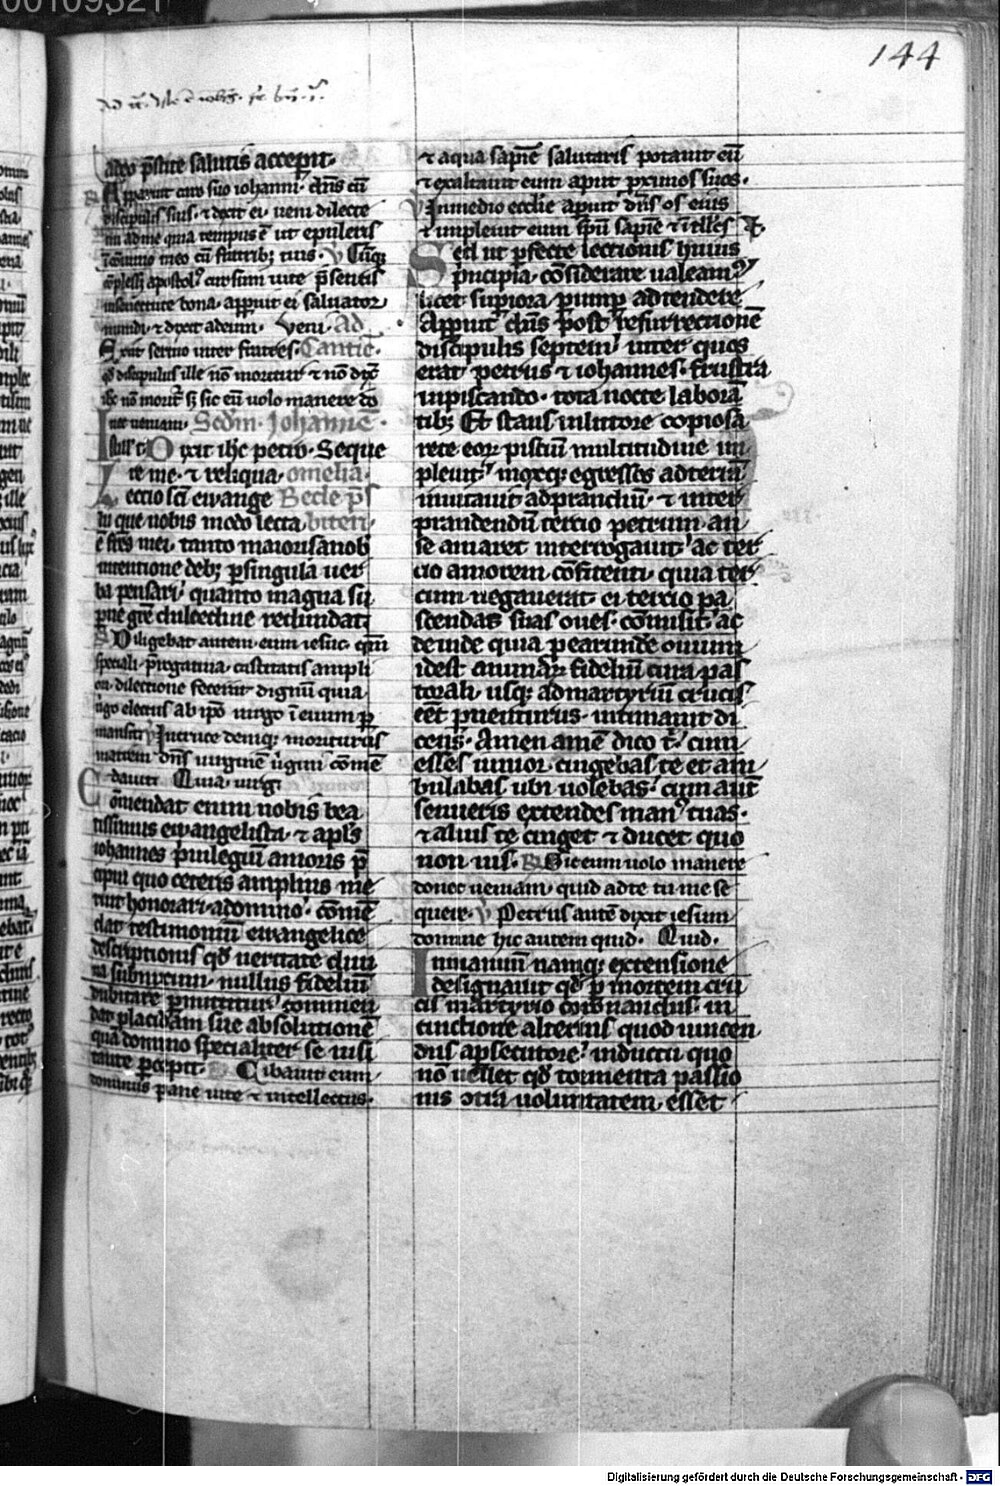 00109321
144
adeo p̄stite salutis accepit.
Apparuit caro suo iohanni. dn̄s cū
discipulis suis. ⁊ dixit ei. ueni dilecte
mi ad me quia tempus ē ut epuleris
ī conuiuio meo cū fratribꝫ tuis. ℣ Cūqꝫ
cōplesset apostolꝰ cursum uite p̄sentis
bona. apparuit ei saluator
mundi. ⁊ dixit ad eum. Veni. Ad
Exiit sermo inter fratres. Cantic̄.
qd̄ discipulus ille nō moritur ⁊ nō dix̄
ih̄c nō morit̄ sꝫ sic eū uolo manere do
nec ueniam. Scd̄m. Johannē.
In ill' t'. Dixit ih̄c petro. Seque
re me. ⁊ reliqua. omelia.
Lectio sc̄i ewange Bede p̄s
lii que nobis modo lecta biteri.
ē fr̄s mei. tanto maiori sa nob̄
intentione debꝫ p singula uer
ba pensari. quanto magna sū
pne gr̄e dulcedine redundat.
℟ Diligebat autem eum iesus. qm̄
speciali. p̄rogatiua. castitatis ampli
ori. dilectione fecerat dignū quia
ũgo electus ab ip̄o uirgo ī euum p
mansit. ℣ In cruce deniqꝫ moriturus
matrem dn̄s uirginē ũgini cōmē
dauit. Quia. uirḡ
Cōmendat enim nobis bea
tissimus ewangelista. ⁊ apl's
iohannes p̄uilegiū amoris p̄
cipui quo ceteris amplius me
ruit honorari. a domino. cōmē
dat testimoniū ewangelice
descriptionis qd̄ ueritate diui
na subnixum. nullus fideliū
dubitare p̄mittitur commen
dat placidam sue absolutionē
quā domino specialiter se uisi
tante pcepit. ℟ Cibauit eum
dominus pane uite ⁊ intellectus.
⁊ aqua sapiē salutaris potauit eū
⁊ exaltauit eum aput proximos suos.
℣ In medio eccl'ie apuit dn̄s os eius
⁊ impleuit eum sp̄u sapiē ⁊ ītell's Et.
Sed ut pfecte lectionis huius
p̄ncipia. cōsiderare ualeamꝰ
licet supiora. paump adtendere
Apparuit dn̄s post resurrectionē
discipulis septem. inter quos
erat petrus ⁊ iohannes. frustra
in piscando. tota nocte laborā
tibꝫ Et stans in litore copiosa
rete eoꝝ pisciū multitudine im
pleuit. moxqꝫ egressos ad terrā
inuitauit ad prandiū. ⁊ inter
prandendū tercio petrum an
se amaret interrogauit. ac ter
cio amorem cōfitenti. quia ter
cium negauerat. ei tercio pa
scendas suas oues. cōmisit. ac
deinde quia p earundē ouium
id est animaꝝ fideliū cura pas
torali. usqꝫ ad martyriū crucis
eēt puenturus. intimauit di
cens. Amen amē dico t'. cum
esses iunior. cingebas te et am
bulabas ubi uolebas. cum aūt
senueris extendes manꝰ tuas.
⁊ alius te cinget ⁊ ducet quo
non uis. ℟ Sic eum uolo manere
donec ueniam. quid ad te tu me se
quere. ℣ Petrus autē dixit iesum
domine hic autem quid. Quid.
In manuū namqꝫ extensione
designauit qd̄ p mortem cru
cis martyrio coronandus. in
cinctione alterius quod uincen
dus a psecutore. inductu quo
nō uellet qd̄ tormenta passio
nis cōtra uoluntatem esset
Digitalisierung gefördert durch die Deutsche Forschungsgemeinschaft - DFG